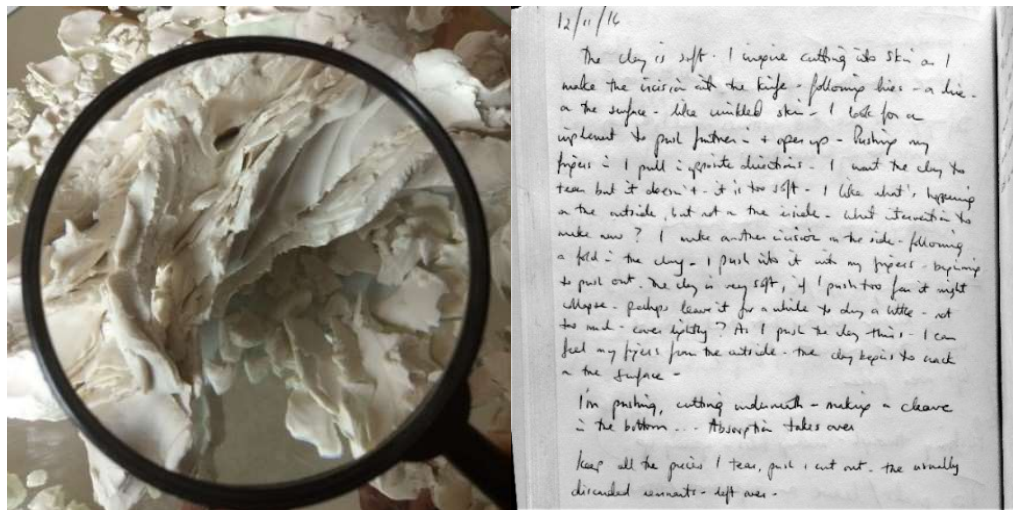 12/11/16
The clay is soft. I imagine cutting into skin as I
make the incision with the knife - following lines - a line -
on the surface - like wrinkled skin - I look for an
implement to push further in + open up - Pushing my
fingers in I pull in opposite directions. I want the clay to
tear but it doesn't - it is too soft - I like what's happening
on the outside, but not on the inside - What intervention to
make now? I make another incision on the side - following
a fold in the clay - I push into it with my fingers - beginning
to push out. The clay is very soft, if I push too far it might
collapse - perhaps leave it for a while to dry a little - not
too much - cover lightly? As I push the clay thins - I can
feel my fingers from the outside - the clay begins to crack
on the surface -
I'm pushing, cutting underneath - making a cleave
in the bottom ... Absorption takes over
Keep all the pieces I tear, push, cut out - the usually
discarded remnants - left over -